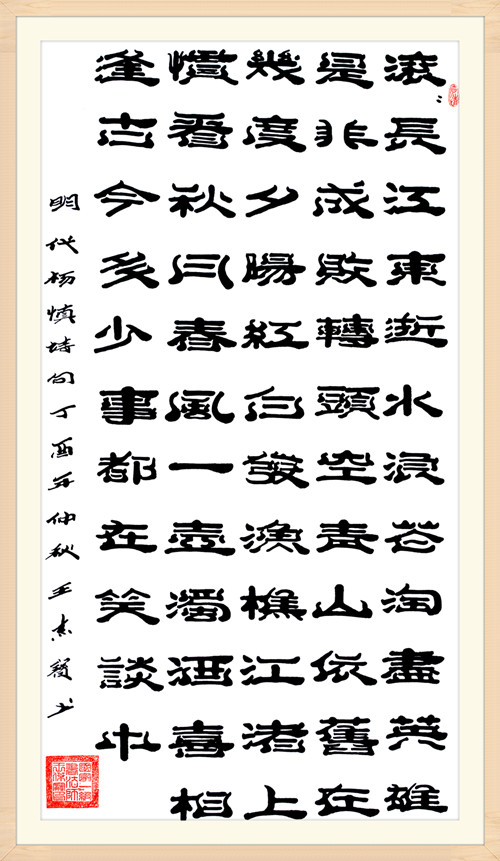 滚〻長江東逝水浪花淘盡英雄
是非成敗轉頭空青山依舊在
幾度夕陽紅白髮漁樵江渚上
慣看秋月春風一壺濁酒喜相
逢古今多少事都在笑談中
明代杨慎诗句丁酉年仲秋王志书